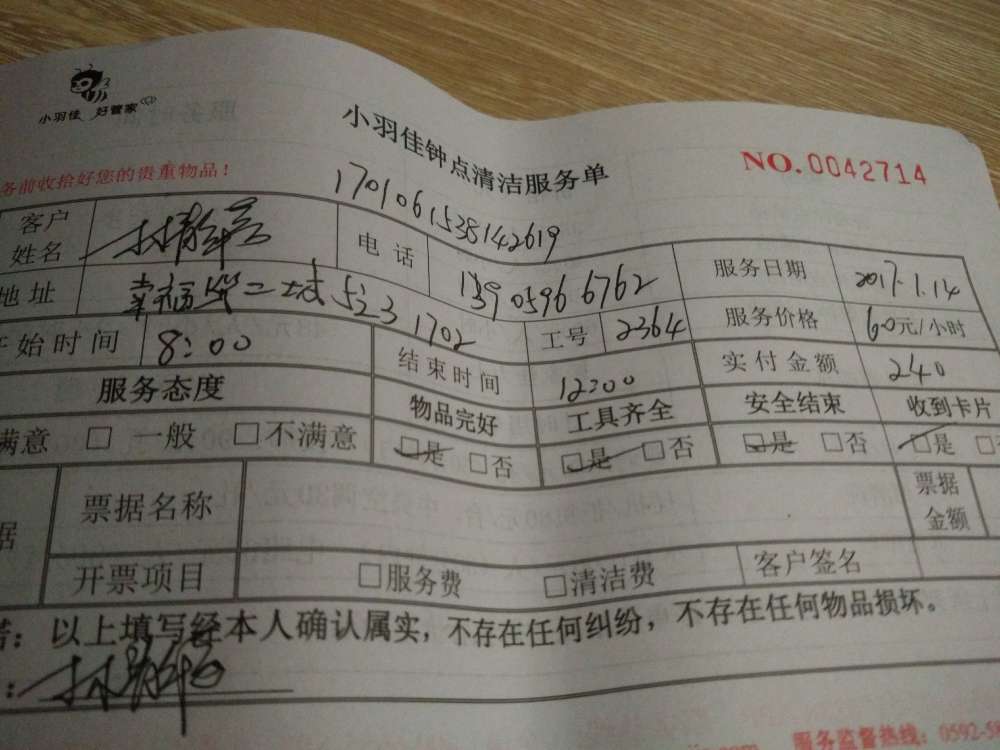 小羽佳 好管家
小羽佳钟点清洁服务单
NO.0042714
务前收拾好您的贵重物品！
1701061538142619
客户姓名 电话 13905966762 服务日期 2017.1.14
地址 幸福 二城 523 1702 工号 2364 服务价格 60元/小时
开始时间 8:00 结束时间 12:00 实付金额 240
服务态度 物品完好 工具齐全 安全结束 收到卡片
满意 □ 一般 □ 不满意 □是 □否 □是 □否 □是 □否 □是 □
据 票据名称 票据金额
开票项目 □服务费 □清洁费 客户签名
诺：以上填写经本人确认属实，不存在任何纠纷，不存在任何物品损坏。
：
服务监督热线：0592-5